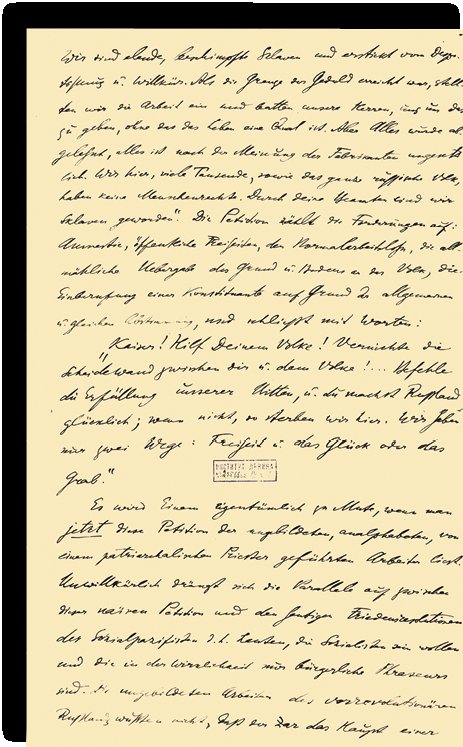 Wir sind elende, beschimpfte Sklaven und erstickt vom Despo-
tismus u. Willkür. Als die Grenze der Geduld erreicht war, stell-
ten wir die Arbeit ein und batten unsere Herren, uns nur das
zu geben, ohne das das Leben eine Qual ist. Aber Alles wurde ab-
gelehnt, alles ist nach der Meinung der Fabrikanten ungesetz-
lich. Wir hier, viele Tausende, sowie das ganze russische Volk,
haben keine Menschenrechte. Durch deine Beamten sind wir
Sklaven geworden". Die Petition zählt die Forderungen auf:
Amnestie, öffentliche Freiheiten, den Normalarbeitslohn, die all-
mähliche Uebergabe des Grund u. Bodens an das Volk, die
Einberufung einer Konstituante auf Grund der allgemeinen
u. gleichen Abstimmung, und schliesst mit Worten:
"Kaiser! Hilf Deinem Volke! Vernichte die
Scheidewand zwischen dir u. dem Volke!... Befehle
die Erfüllung unserer Bitten, u. du machst Russland
glücklich; wenn nicht, so sterben wir hier. Wir haben
nur zwei Wege: Freiheit u. das Glück oder das
Grab."
ИНСТИТУТ ЛЕНИНА
Es wird Einem eigentümlich zu Mute, wenn man
jetzt diese Petition der ungebildeten, analphabeten, von
einem patriarchalischen Priester geführten Arbeiter liest.
Unwillkürlich drängt sich die Parallele auf zwischen
dieser naiven Petition und den heutigen Friedensresolutionen
der Sozialpazifisten d.h. Leuten, die Sozialisten sein wollen
und die in der Wirklichkeit nur bürgerliche Phraseurs
sind. Die ungebildeten Arbeiter des vorrevolutionären
Russland wussten nicht, dass der Zar das Haupt einer